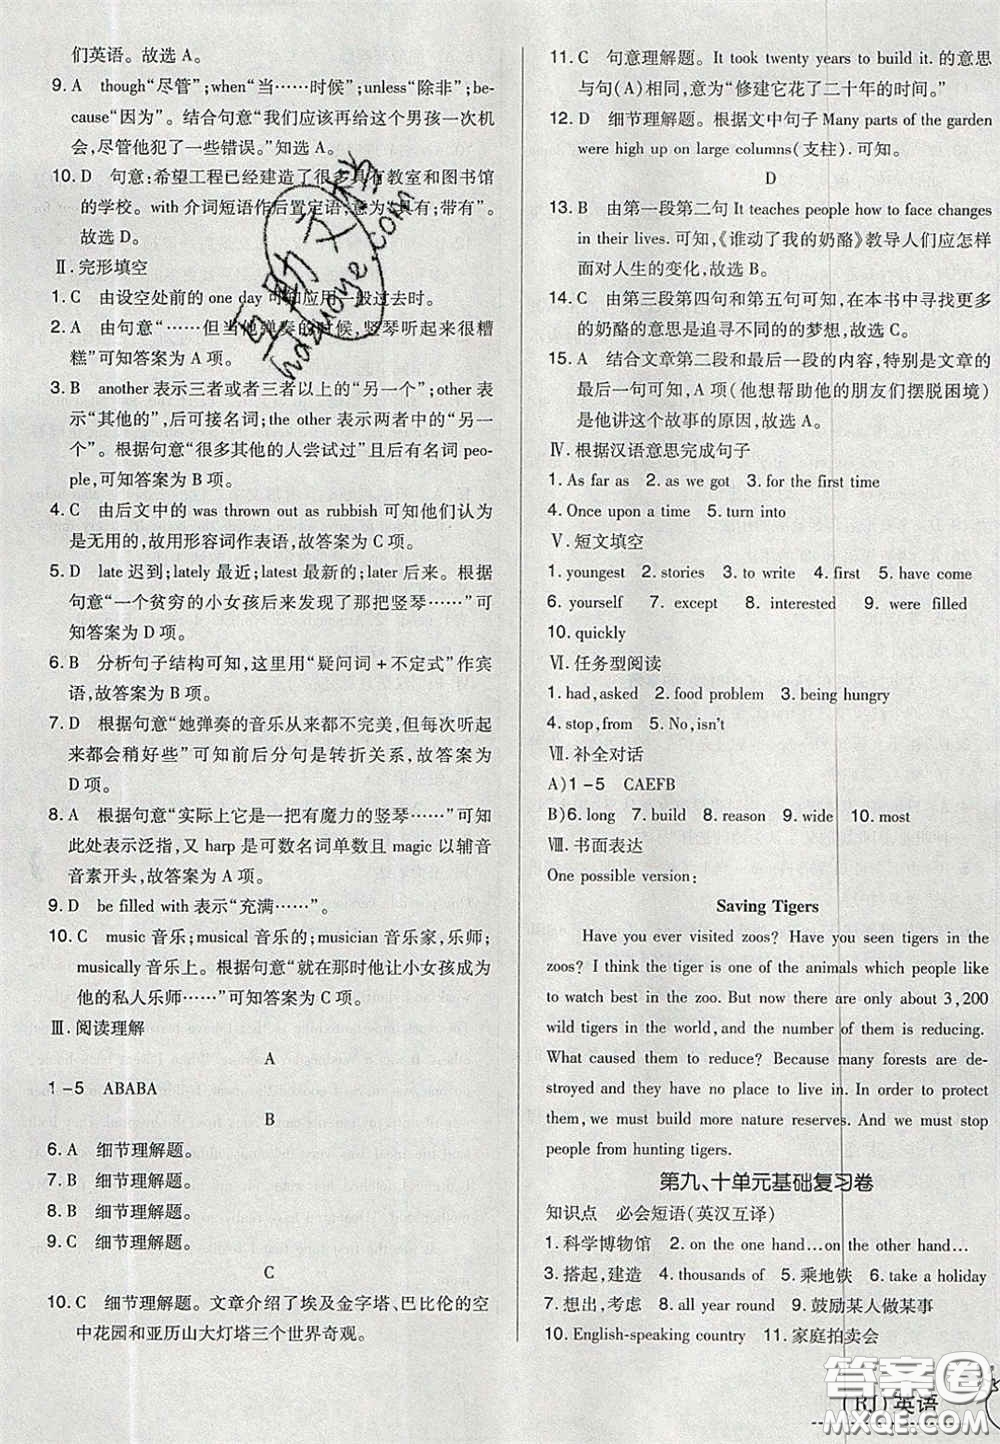 们英语。故选 A。
9. A　though“尽管”;when“当……时候”;unless“除非”;be-
cause“因为”。结合句意“我们应该再给这个男孩一次机
会,尽管他犯了一些错误。”知选 A。
10. D　句意:希望工程已经建造了很多具有教室和图书馆
的学校。with 介词短语作后置定语,意为“具有;带有”。
故选 D。
Ⅱ. 完形填空
1. C　由设空处前的 one day 可知应用一般过去时。
2. A　由句意“……但当他弹奏的时候,竖琴听起来很糟
糕”可知答案为 A 项。
3. B　another 表示三者或者三者以上的“另一个”;other 表
示“其他的”,后可接名词;the other 表示两者中的“另一
个”。根据句意“很多其他的人尝试过”且后有名词 peo-
ple,可知答案为 B 项。
4. C　由后文中的 was thrown out as rubbish 可知他们认为
是无用的,故用形容词作表语,故答案为 C 项。
5. D　late 迟到;lately 最近;latest 最新的;later 后来。根据
句意“一个贫穷的小女孩后来发现了那把竖琴……”可
知答案为 D 项。
6. B　分析句子结构可知,这里用“疑问词 + 不定式”作宾
语,故答案为 B 项。
7. D　根据句意“她弹奏的音乐从来都不完美,但每次听起
来都会稍好些”可知前后分句是转折关系,故答案为
D 项。
8. A　根据句意“实际上它是一把有魔力的竖琴……”可知
此处表示泛指,又 harp 是可数名词单数且 magic 以辅音
音素开头,故答案为 A 项。
9. D　be filled with 表示“充满……”。
10. C　music 音乐;musical 音乐的;musician 音乐家,乐师;
musically 音乐上。根据句意“就在那时他让小女孩成为
他的私人乐师……”可知答案为 C 项。
Ⅲ. 阅读理解
A
1-5　ABABA
B
6. A　细节理解题。
7. B　细节理解题。
8. B　细节理解题。
9. C　细节理解题。
C
10. C　细节理解题。文章介绍了埃及金字塔、巴比伦的空
中花园和亚历山大灯塔三个世界奇观。
11. C　句意理解题。It took twenty years to build it. 的意思
与句(A)相近,意为“修建它花了二十年的时间。”
12. D　细节理解题。根据文中句子 Many parts of the garden
were high up on large columns(支柱). 可知。
D
13. B　由第一段第二句 It teaches people how to face changes
in their lives. 可知,《谁动了我的奶酪》教导人们应怎样
面对人生的变化,故选 B。
14. C　由第三段第四句和第五句可知,在本书中寻找更多
的奶酪的意思是追寻不同的的梦想,故选 C。
15. A　结合文章第二段和最后一段的内容,特别是文章的
最后一句可知,A 项(他想帮助他的朋友们摆脱困境)
是他讲这个故事的原因,故选 A。
Ⅳ. 根据汉语意思完成句子
1. As far as　2. as we got　3. for the first time
4. Once upon a time　5. turn into
Ⅴ. 短文填空
1. youngest　2. stories　3. to write　4. first　5. have come
6. yourself　7. except　8. interested　9. were filled
10. quickly
Ⅵ. 任务型阅读
1. had,asked　2. food problem　3. being hungry
4. stop,from　5. No,isn't
Ⅶ. 补全对话
A)1-5　CAEFB
B)6. long　7. build　8. reason　9. wide　10. most
Ⅷ. 书面表达
One possible version:
Saving Tigers
Have you ever visited zoos? Have you seen tigers in the
zoos? I think the tiger is one of the animals which people like
to watch best in the zoo. But now there are only about 3,200
wild tigers in the world, and the number of them is reducing.
What caused them to reduce? Because many forests are de-
stroyed and they have no place to live in. In order to protect
them, we must build more nature reserves. And we must stop
people from hunting tigers.
第九、十单元基础复习卷
知识点　必会短语(英汉互译)
1. 科学博物馆　2. on the one hand…on the other hand…
3. 搭起,建造　4. thousands of　5. 乘地铁　6. take a holiday
7. 想出,考虑　8. all year round　9. 鼓励某人做某事
10. English-speaking country　11. 家庭拍卖会
(RJ)英语
互助文档
hdzuoye.com
答案圈
MXQE.COM